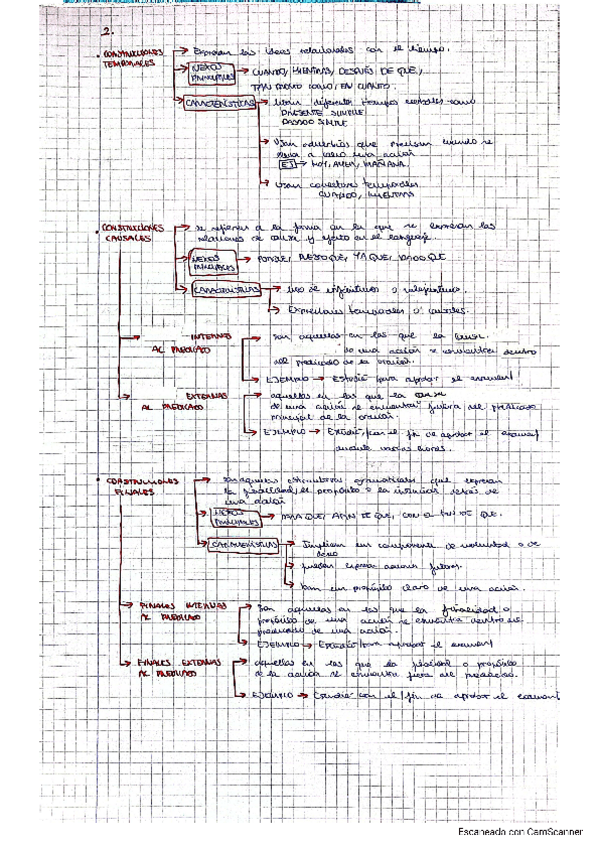 2.
• CONSTRUCCIONES TEMPORALES → Expresan las ideas relacionadas con el tiempo.
→ NEXOS PRINCIPALES → CUANDO, MIENTRAS, DESPUÉS DE QUE,
TAN PRONTO COMO, EN CUANTO.
→ CARACTERÍSTICAS → Usan diferentes tiempos verbales como
PRESENTE SIMPLE
PASADO SIMPLE
→ Usan adverbios que precisan cuando se
lleva a cabo una acción
EJ → HOY, AYER, MAÑANA.
→ Usan conectores temporales
CUANDO, MIENTRAS
• CONSTRUCCIONES CAUSALES → se refieren a la forma en la que se expresan las
relaciones de causa y efecto en el lenguaje.
→ NEXOS PRINCIPALES → PORQUE, PUESTO QUE, YA QUE, DADO QUE
→ CARACTERÍSTICAS → Uso de infinitivos o subjuntivos.
→ Expresiones temporales o causales.
→ INTERNAS AL PREDICADO → Son aquellas en las que la causa
de una acción se encuentra dentro
del predicado de la oración.
→ EJEMPLO → Estudié para aprobar el examen
→ EXTERNAS AL PREDICADO → aquellas en las que la causa
de una acción se encuentra fuera del predicado
principal de la oración.
→ EJEMPLO → Estudié, con el fin de aprobar el examen,
durante varias horas.
• CONSTRUCCIONES FINALES → Son aquellas estructuras gramaticales que expresan
la finalidad, el propósito o la intención detrás de
una acción
→ NEXOS PRINCIPALES → PARA QUE, A FIN DE QUE, CON EL FIN DE QUE.
→ CARACTERÍSTICAS → Implican un componente de voluntad o de
deseo
→ pueden expresar acciones futuras.
→ un propósito claro de una acción.
→ FINALES INTERNAS AL PREDICADO → Son aquellas en las que la finalidad o
propósito de una acción se encuentra dentro del
predicado de una acción.
→ EJEMPLO → Estudié para aprobar el examen
→ FINALES EXTERNAS AL PREDICADO → aquellas en las que la finalidad o propósito
de la acción se encuentra fuera del predicado.
→ EJEMPLO → Estudié con el fin de aprobar el examen
Escaneado con CamScanner